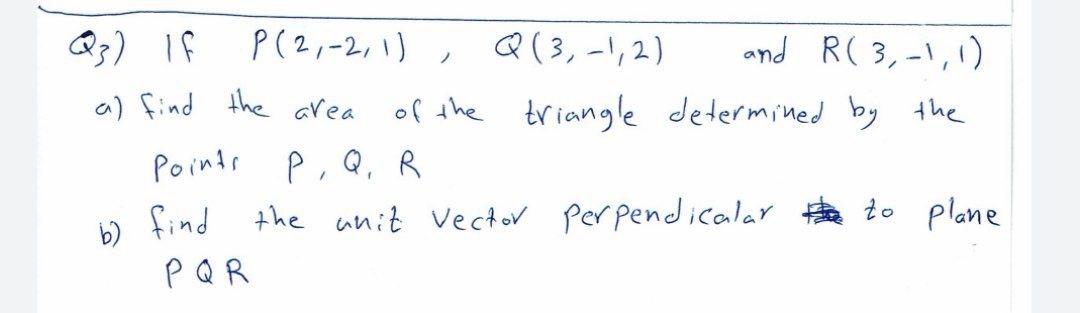 Q3) If P(2,-2,1) , Q(3,-1,2) and R(3,-1,1)
a) find the area of the triangle determined by the
Points P, Q, R
b) find the unit vector perpendicalar to plane
PQR